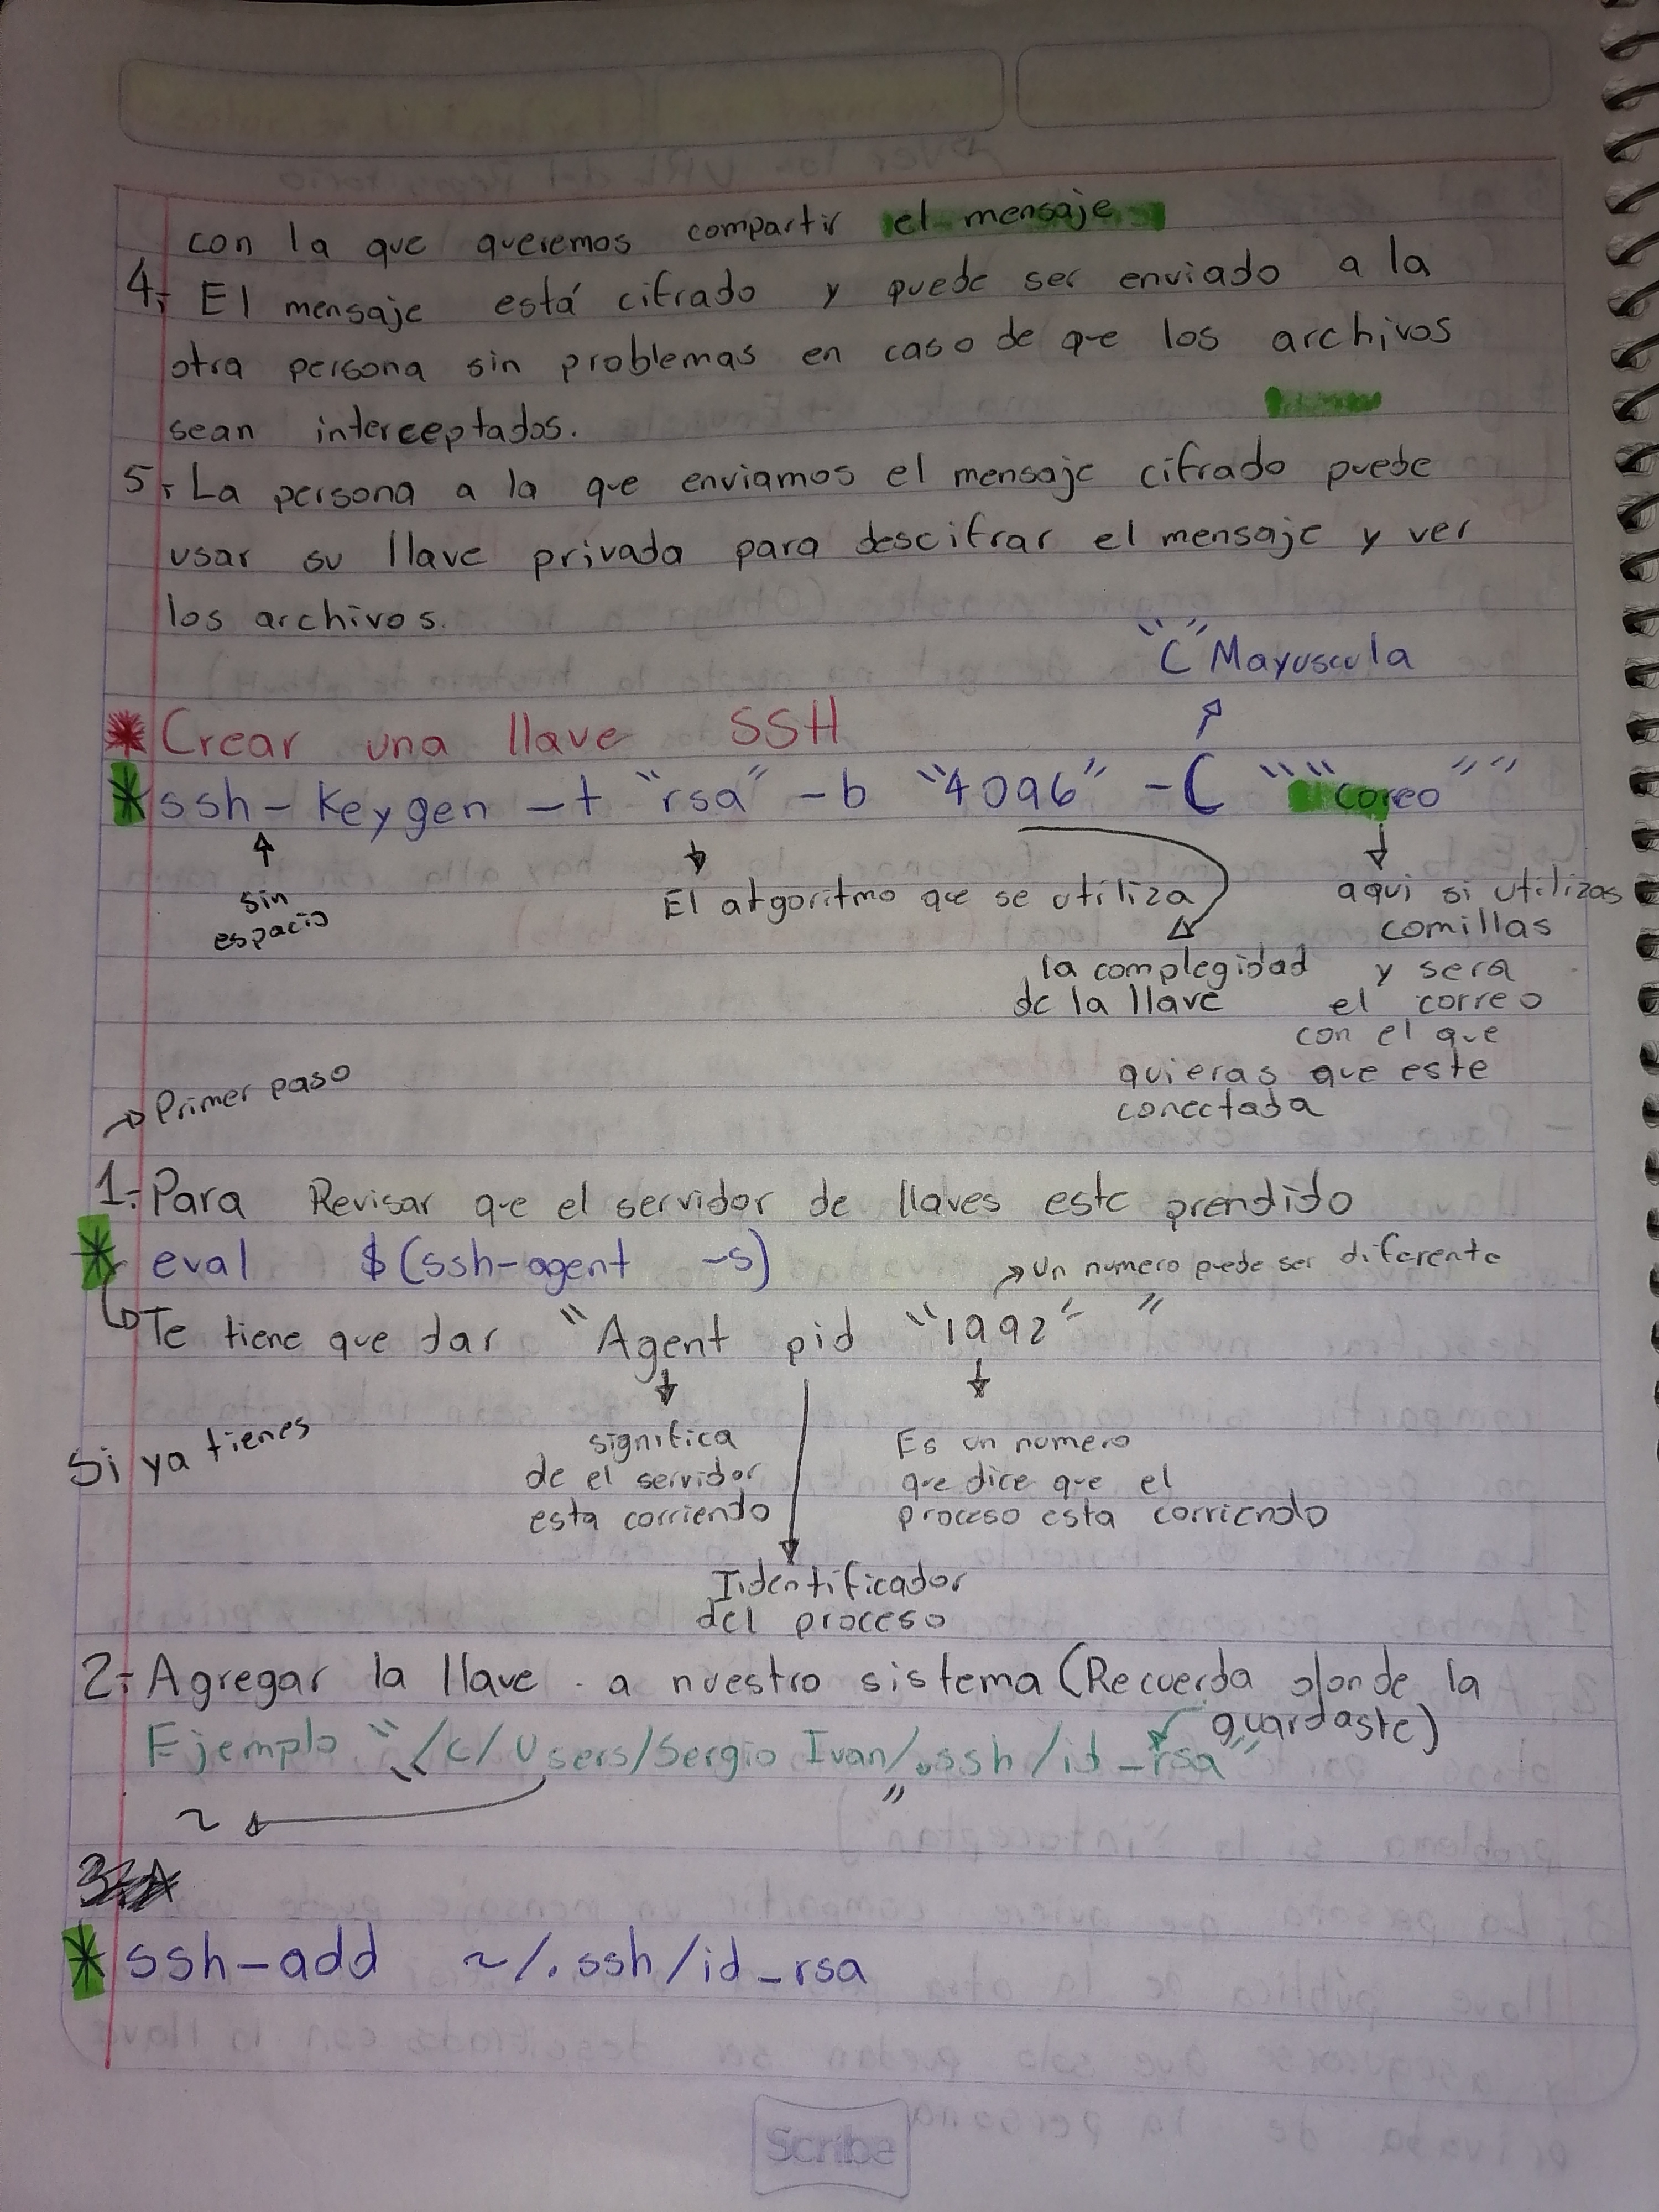 con la que queremos compartir el mensaje
4.- El mensaje está cifrado y puede ser enviado a la
otra persona sin problemas en caso de que los archivos
sean interceptados.
5.- La persona a la que enviamos el mensaje cifrado puede
usar su llave privada para descifrar el mensaje y ver
los archivos.
"C" Mayuscula
* Crear una llave SSH
* ssh-keygen -t "rsa" -b "4096" -C ""correo""
sin
espacio
El algoritmo que se utiliza
la complegidad
de la llave
aqui si utilizas
comillas
y sera
el correo
con el que
quieras que este
conectada
→ Primer paso
1.- Para Revisar que el servidor de llaves este prendido
* eval $(ssh-agent -s)
→ Un numero puede ser diferente
Te tiene que dar "Agent pid "1992" "
Si ya tienes
significa
de el servidor
esta corriendo
Es un numero
que dice que el
proceso esta corriendo
Identificador
del proceso
2.- Agregar la llave a nuestro sistema (Recuerda donde la
guardaste)
Ejemplo "/c/Users/Sergio Ivan/.ssh/id_rsa"
~
* ssh-add ~/.ssh/id_rsa
Scribe